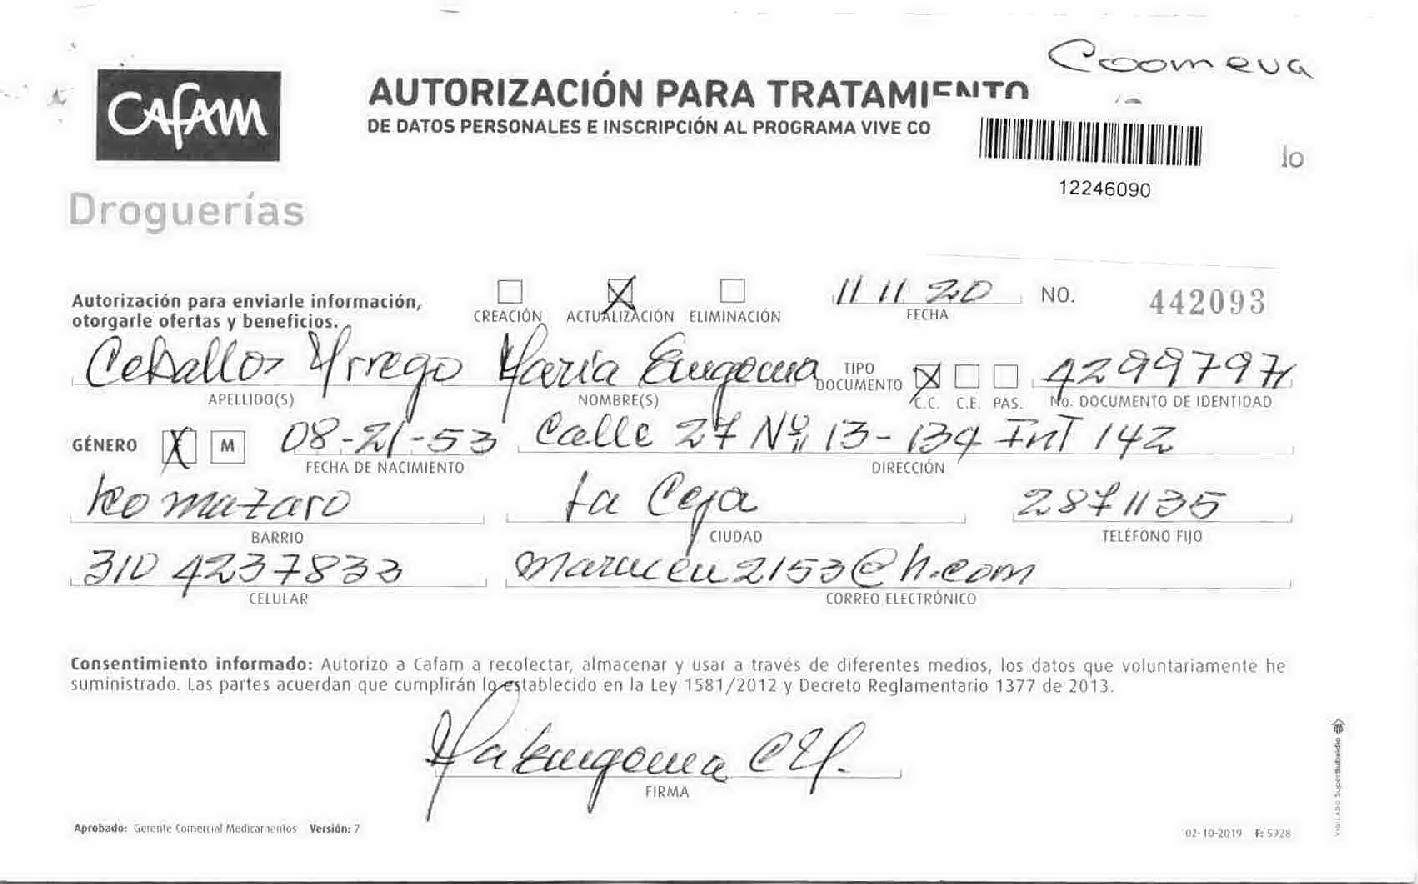 Coomeva
Cafam
AUTORIZACIÓN PARA TRATAMIENTO
DE DATOS PERSONALES E INSCRIPCIÓN AL PROGRAMA VIVE CO
lo
12246090
Droguerías
Autorización para enviarle información,
otorgarle ofertas y beneficios.
CREACIÓN X ACTUALIZACIÓN ELIMINACIÓN
11 11 20 NO. 442093
FECHA
Ceballos Urrego María Eugenia TIPO DOCUMENTO X 42997971
APELLIDO(S) NOMBRE(S) C.C. C.E. PAS. No. DOCUMENTO DE IDENTIDAD
GÉNERO X M 08-21-53 Calle 27 Nº 13-139 Int 142
FECHA DE NACIMIENTO DIRECCIÓN
La Ceja 2871135
BARRIO CIUDAD TELÉFONO FIJO
310 4237833 2153@h.com
CELULAR CORREO ELECTRÓNICO
Consentimiento informado: Autorizo a Cafam a recolectar, almacenar y usar a través de diferentes medios, los datos que voluntariamente he
suministrado. Las partes acuerdan que cumplirán lo establecido en la Ley 1581/2012 y Decreto Reglamentario 1377 de 2013.
MaEugenia CU.
FIRMA
Aprobado: Gerente Comercial Medicamentos Versión: 7
02-10-2019 F: 5928
VIGILADO SuperSubsidio